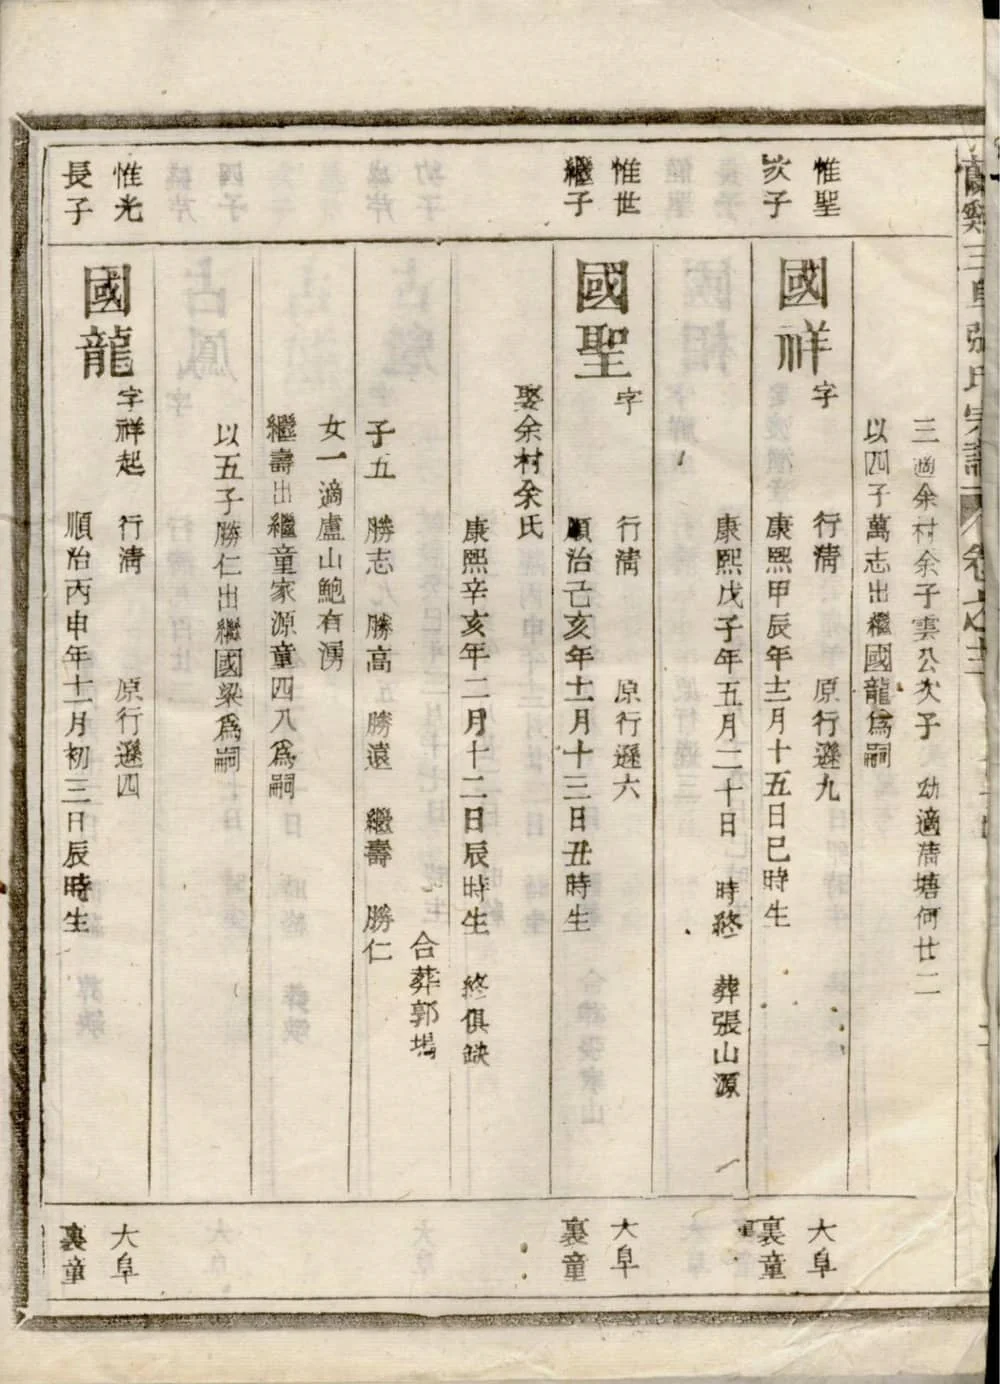 三皐張氏宗譜 卷之十三
三適余村余子雲公次子 幼適清塘何廿二
以四子萬志出繼國龍爲嗣
惟聖
次子
國祥
字 行清 原行遜九
康熙甲辰年十二月十五日巳時生
康熙戊子年五月二十日 時終 葬張山源
大阜
裏童
惟世
繼子
國聖
字 行清 原行遜六
順治己亥年十一月十三日丑時生
娶余村余氏
康熙辛亥年二月十二日辰時生 終俱缺
合葬郭塢
子五 勝志 勝高 勝遠 繼壽 勝仁
女一適盧山鮑有湧
繼壽出繼童家源童四八爲嗣
以五子勝仁出繼國梁爲嗣
大阜
裏童
惟光
長子
國龍
字祥起 行清 原行遜四
順治丙申年十一月初三日辰時生
大阜
裏童